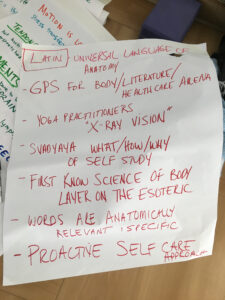 MOTION IS L
TENDON
MENTS
LATIN UNIVERSAL LANGUAGE OF
ANATOMY
- GPS FOR BODY/LITERATURE/
HEALTHCARE ARENA
- YOGA PRACTITIONERS
"X-RAY VISION"
- SVADYAYA WHAT/HOW/WHY
OF SELF STUDY
- FIRST KNOW SCIENCE OF BODY
LAYER ON THE ESOTERIC
- WORDS ARE ANATOMICALLY
RELEVANT & SPECIFIC
- PROACTIVE SELF CARE
APPROACH